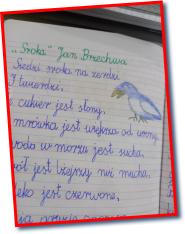 „Sroka" Jan Brzechwa
Siedzi sroka na żerdzi
I twierdzi,
cukier jest słony,
mrówka jest większa od wrony,
woda w morzu jest sucha,
wół jest lżejszy niż mucha,
leko jest czerwone,